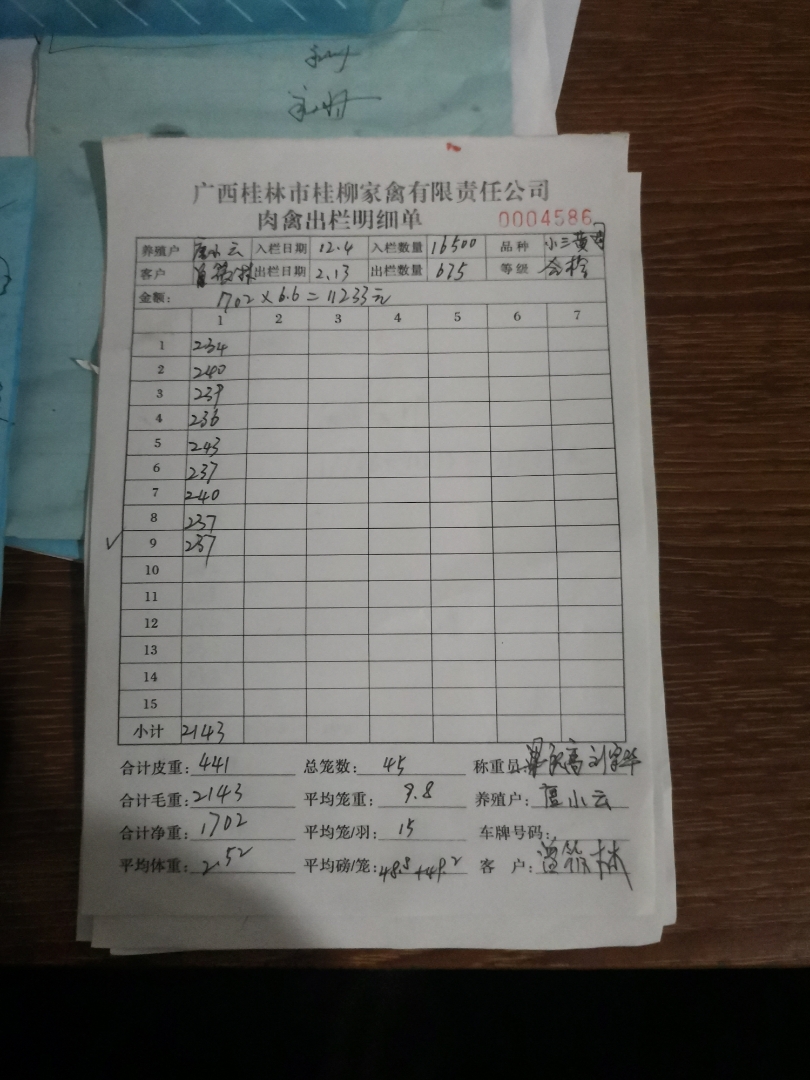 广西桂林市桂柳家禽有限责任公司
肉禽出栏明细单 0004586
养殖户 唐小云 入栏日期 12.4 入栏数量 16500 品种 小三黄
客户 林 出栏日期 2.13 出栏数量 675 等级 合格
金额: 1702×6.6=11233元
1 2 3 4 5 6 7
1 234
2 240
3 239
4 236
5 243
6 237
7 240
8 237
✓ 9 237
10
11
12
13
14
15
小计 2143
合计皮重: 441 总笼数: 45 称重员:
合计毛重: 2143 平均笼重: 9.8 养殖户: 唐小云
合计净重: 1702 平均笼/羽: 15 车牌号码:
平均体重: 2.52 平均磅/笼: 48.8+49.2 客 户: 林